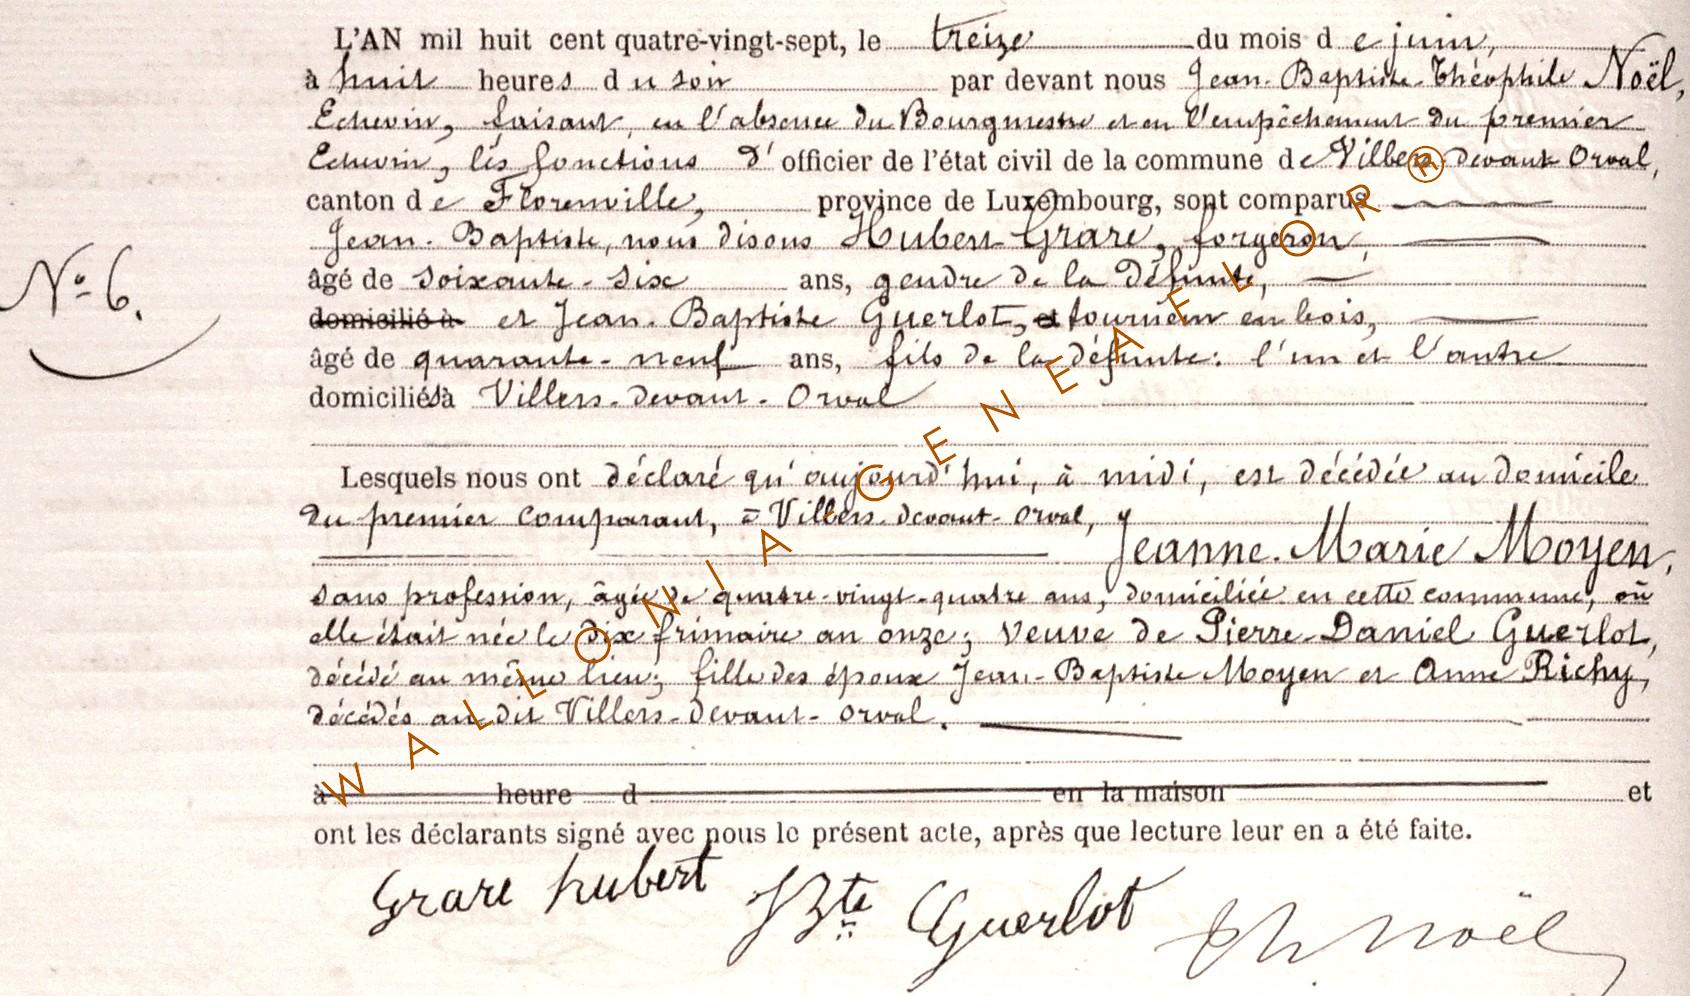 L'AN mil huit cent quatre-vingt-sept, le treize du mois de juin,
à huit heures du soir par devant nous Jean-Baptiste-Théophile Noël,
Echevin, faisant, en l'absence du Bourgmestre et en l'empêchement du premier
Echevin, les fonctions d'officier de l'état civil de la commune de Villers devant Orval,
canton de Florenville, province de Luxembourg, sont comparus
Jean-Baptiste, nous disons Hubert Grare, forgeron,
N° 6.
âgé de soixante-six ans, gendre de la défunte,
domicilié à et Jean-Baptiste Guerlot, et tourneur en bois,
âgé de quarante-neuf ans, fils de la défunte: l'un et l'autre
domiciliés à Villers-devant-Orval
Lesquels nous ont déclaré qu'aujourd'hui, à midi, est décédée au domicile
du premier comparant, à Villers-devant-Orval,
Jeanne-Marie Moyen,
sans profession, âgée de quatre-vingt-quatre ans, domiciliée en cette commune, où
elle était née le dix frimaire an onze; veuve de Pierre-Daniel Guerlot,
décédé au même lieu; fille des époux Jean-Baptiste Moyen et Anne Richy,
décédés au dit Villers-devant-Orval.
à heure d en la maison et
ont les déclarants signé avec nous le présent acte, après que lecture leur en a été faite.
Grare hubert JBte Guerlot Th. Noël
WALLONIA GENEAFLOR ®